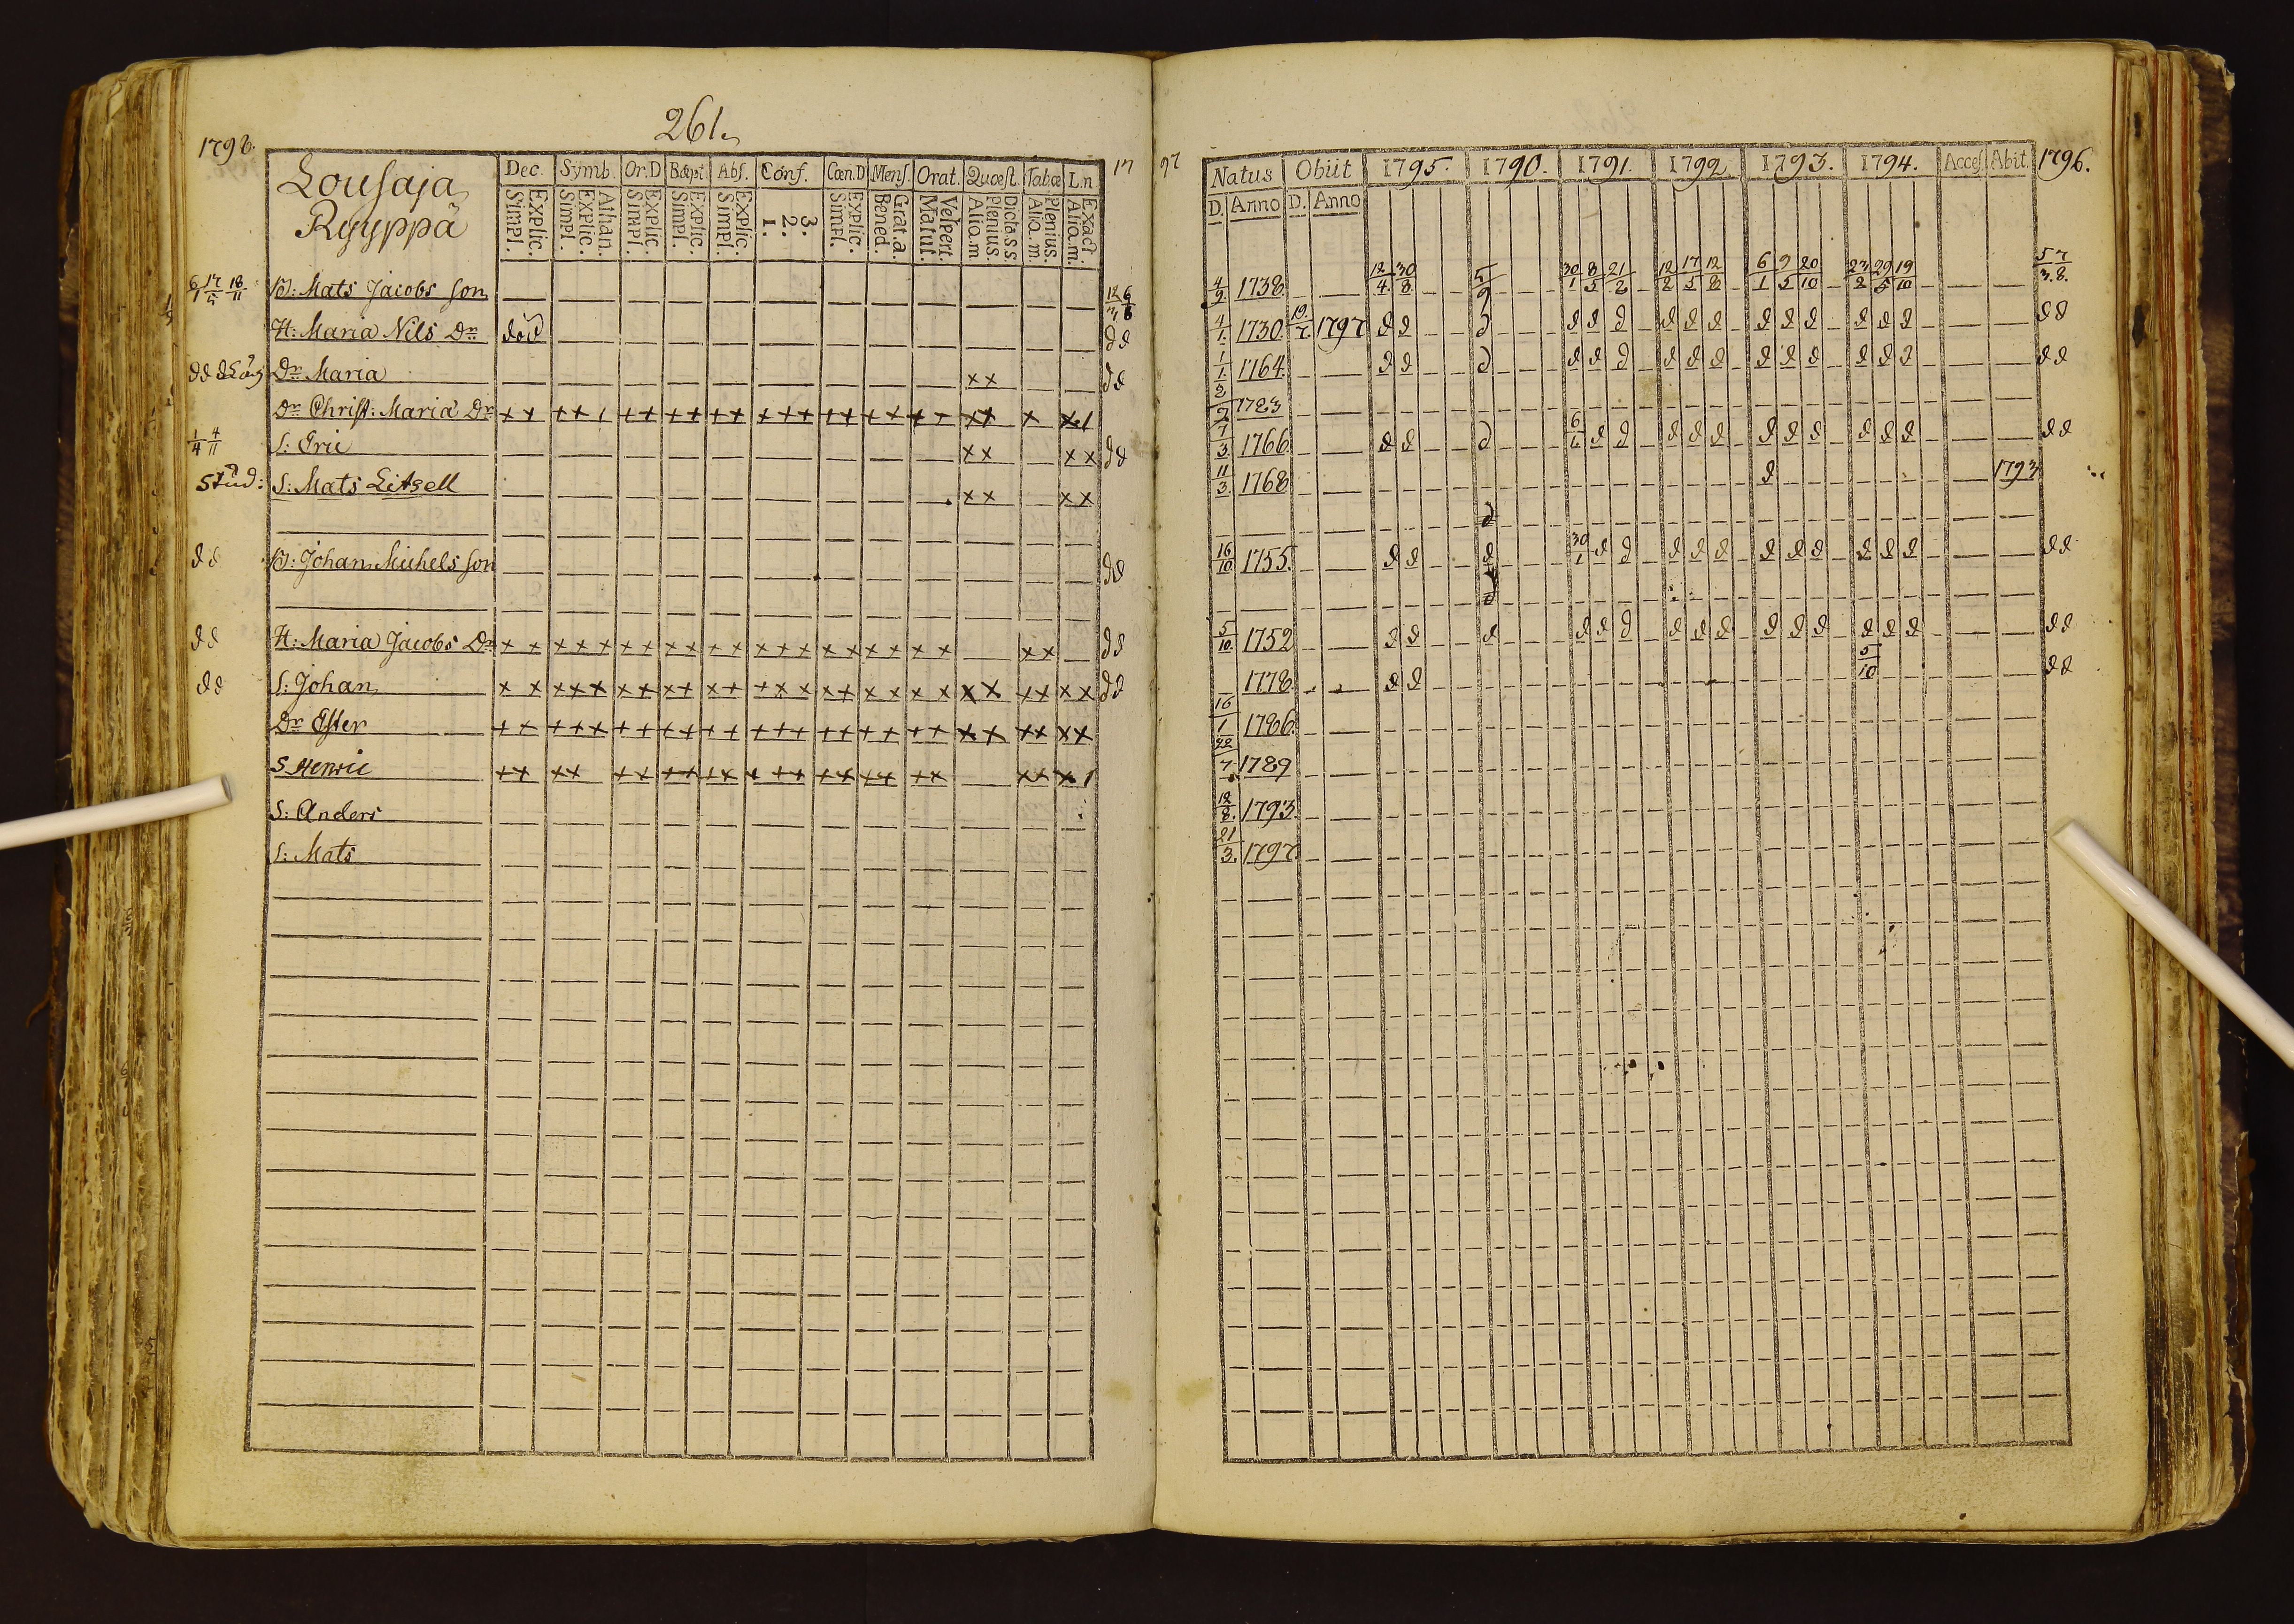 261.
1798.
Lousaja
Ryyppä
Dec. Symb. Or.D Bapt. Abs. Conf. Cœn.D Mens. Orat. Quœst. Tabœ L.n 17
Explic. Simpl. Athan. Explic. Simpl. Explic. Simpl. Explic. Simpl. Explic. Simpl. 3. 2. 1. Explic. Simpl. Grat.a. Bened. Velpert. Matut. Dicta.s.s Plenius. Alio.m Plenius. Alio.m. Exact. Alio.m.
6/1 17/5 18/11 B: Mats Jacobs son 12/3 6/8
H: Maria Nils Dr död d d
d d d Dr Maria x x d d
Dr Christ: Maria Dr ++ ++1 ++ ++ ++ +++ ++ ++ ++ ++ x x1
1/4 4/11 S: Eric x x x x d d
Stud: S: Mats Litzell x x x x
d d B: Johan Michels son d d
d d H: Maria Jacobs Dr x x x x x x x x x x x x x x x x x x x x x x x d d
d d S: Johan x x x x x x x x x x x + x x x x x x x x x x x x x x d d
Dr Ester ++ +++ ++ ++ ++ +++ ++ ++ ++ x x x x x x
S Henric ++ ++ ++ ++ ++ +++ ++ ++ ++ x x x 1
S: Anders
S: Mats
97 Natus Obiit 1795. 1790. 1791. 1792. 1793. 1794. Acces Abit. 1796.
D. Anno D. Anno
4/9. 1738. 12/4. 30/8 5/9 30/1 8/5 21/2 12/2 17/5 12/8 6/1 9/5 20/10 23/2 29/5 19/10 5/3. 7/8.
4/1. 1730. 19/2. 1797 d d d d d d d d d d d d d d d d d
1/1 1764. d d d d d d d d d d d d d d d d d
2/7 1783
7/3. 1766. d d d 6/6 d d d d d d d d d d d d d
11/3. 1768 d 1793
d
16/10 1755. d d d 30/1 d d d d d d d d d d d d d
d
5/10. 1752 d d d d d d d d d d d d d d d d d
1778. d d 5/10 d d
16/1 1786.
22/7 1789
12/8. 1793.
21/3. 1797